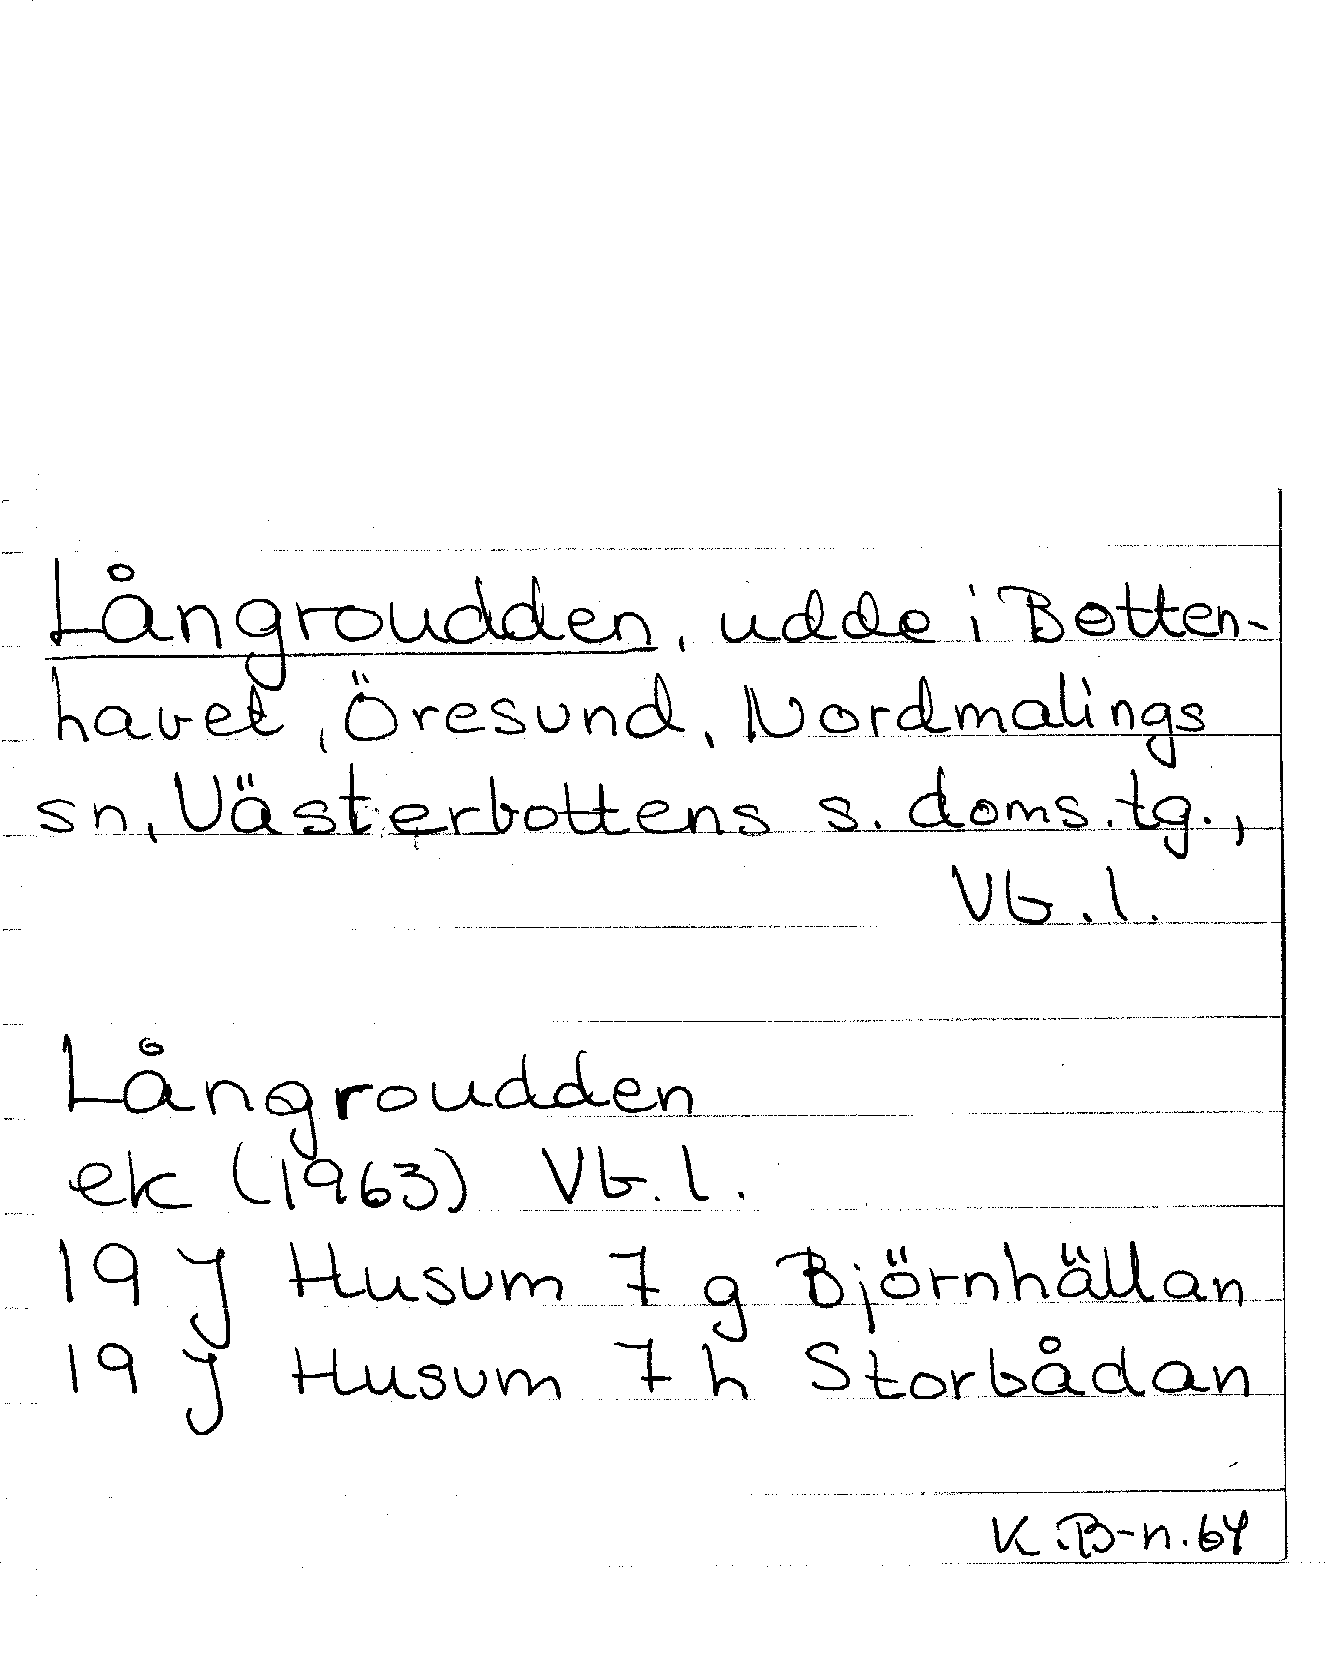 Långroudden, udde i Botten-
havet, Öresund, Nordmalings
sn, Västerbottens s. doms.tg.,
Vb.l.
Långroudden
ek (1963) Vb.l.
19 J Husum 7 g Björnhällan
19 J Husum 7 h Storbådan
K.B-n.64